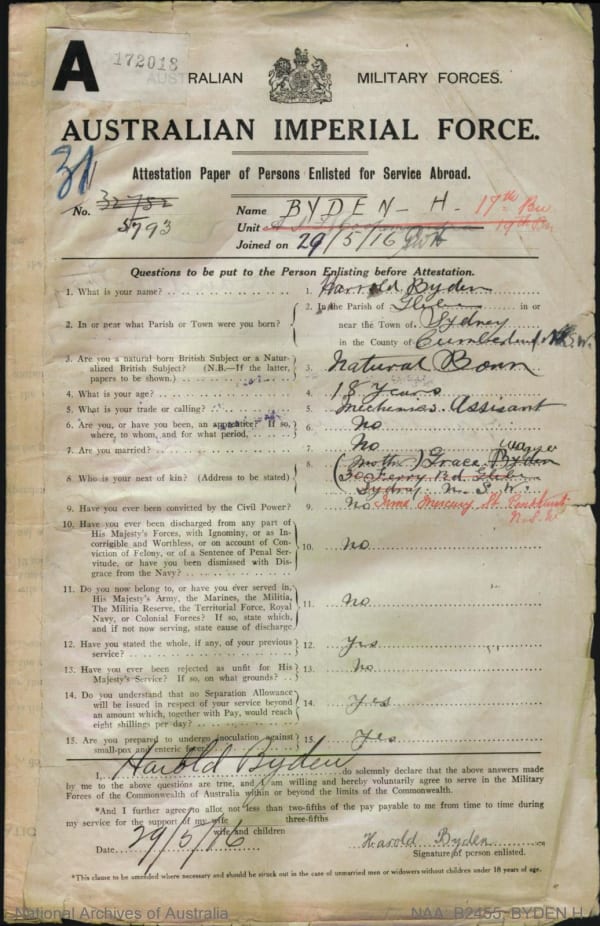 A
172018
AUSTRALIAN MILITARY FORCES.
AUSTRALIAN IMPERIAL FORCE.
Attestation Paper of Persons Enlisted for Service Abroad.
31
No. 32752
5793
Name BYDEN - H. 17th
Unit 19th
Joined on 29/5/16
Questions to be put to the Person Enlisting before Attestation.
1. What is your name? 1. Harrold Byden
2. In or near what Parish or Town were you born? 2. In the Parish of Glebe in or
near the Town of Sydney
in the County of Cumberland N.S.W.
3. Are you a natural born British Subject or a Natu-
ralized British Subject? (N.B.—If the latter,
papers to be shown.) 3. Natural Born
4. What is your age? 4. 18 Years
5. What is your trade or calling? 5. Mechanics Assisant
6. Are you, or have you been, an apprentice? If so,
where, to whom, and for what period, 6. No
7. Are you married? 7. No
8. Who is your next of kin? (Address to be stated) 8. (Mother) Grace Byden
30 Ferry Rd Glebe
Sydney N.S.W.
9. Have you ever been convicted by the Civil Power? 9. No
10. Have you ever been discharged from any part of
His Majesty's Forces, with Ignominy, or as In-
corrigible and Worthless, or on account of Con-
viction of Felony, or of a Sentence of Penal Ser-
vitude, or have you been dismissed with Dis-
grace from the Navy? 10. No
11. Do you now belong to, or have you ever served in,
His Majesty's Army, the Marines, the Militia,
The Militia Reserve, the Territorial Force, Royal
Navy, or Colonial Forces? If so, state which,
and if not now serving, state cause of discharge 11. No
12. Have you stated the whole, if any, of your previous
service? 12. Yes
13. Have you ever been rejected as unfit for His
Majesty's Service? If so, on what grounds? 13. No
14. Do you understand that no Separation Allowance
will be issued in respect of your service beyond
an amount which, together with Pay, would reach
eight shillings per day? 14. Yes
15. Are you prepared to undergo inoculation against
small-pox and enteric fever? 15. Yes
I, Harold Byden do solemnly declare that the above answers made
by me to the above questions are true, and I am willing and hereby voluntarily agree to serve in the Military
Forces of the Commonwealth of Australia within or beyond the limits of the Commonwealth.
*And I further agree to allot not less than two-fifths of the pay payable to me from time to time during
three-fifths
my service for the support of my wife
wife and children
Date 29/5/16
Harold Byden
Signature of person enlisted.
*This clause to be amended where necessary and should be struck out in the case of unmarried men or widowers without children under 18 years of age.
National Archives of Australia
NAA: B2455, BYDEN H